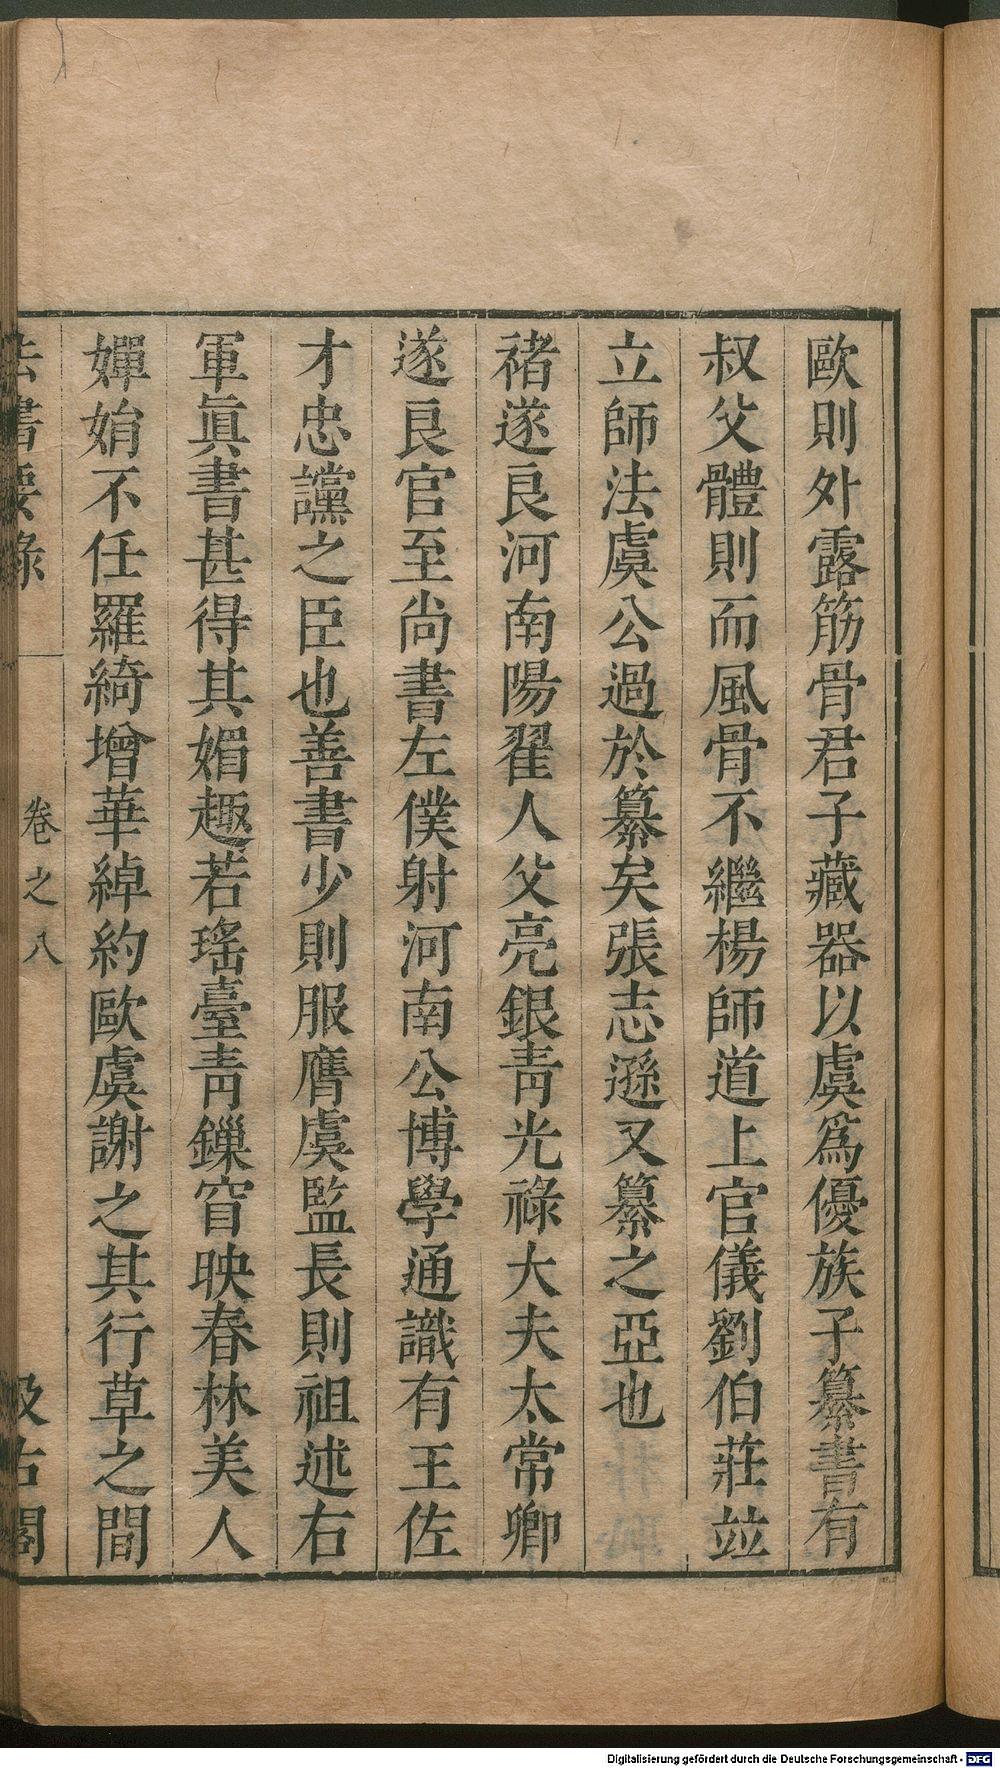 歐則外露筋骨君子藏器以虞爲優族子纂書有
叔父體則而風骨不繼楊師道上官儀劉伯莊竝
立師法虞公過於纂矣張志遜又纂之亞也
褚遂良河南陽翟人父亮銀靑光祿大夫太常卿
遂良官至尚書左僕射河南公博學通識有王佐
才忠讜之臣也善書少則服膺虞監長則祖述右
軍眞書甚得其媚趣若瑤臺靑鏁窅映春林美人
嬋娟不任羅綺增華綽約歐虞謝之其行草之間
法書要錄 卷之八 汲古閣
Digitalisierung gefördert durch die Deutsche Forschungsgemeinschaft - DFG